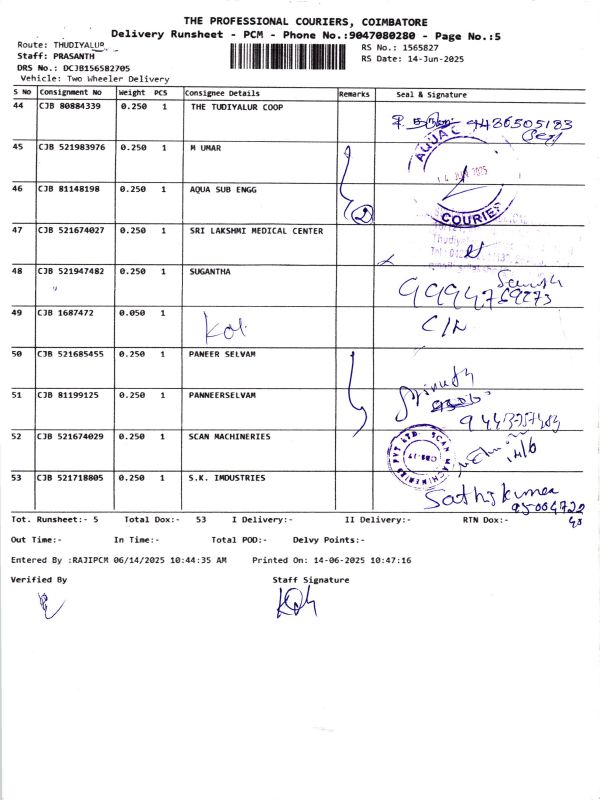 THE PROFESSIONAL COURIERS, COIMBATORE
Delivery Runsheet - PCM - Phone No.:9047080280 - Page No.:5
Route: THUDIYALUR
RS No.: 1565827
Staff: PRASANTH
RS Date: 14-Jun-2025
DRS No.: DCJB156582705
Vehicle: Two Wheeler Delivery
S No Consignment No Weight PCS Consignee Details Remarks Seal & Signature
44 CJB 80884339 0.250 1 THE TUDIYALUR COOP 9486505183
45 CJB 521983976 0.250 1 M UMAR
14 JUN 2025
46 CJB 81148198 0.250 1 AQUA SUB ENGG 2
COURIER
47 CJB 521674027 0.250 1 SRI LAKSHMI MEDICAL CENTER
48 CJB 521947482 0.250 1 SUGANTHA
9994769273
49 CJB 1687472 0.050 1
50 CJB 521685455 0.250 1 PANEER SELVAM
51 CJB 81199125 0.250 1 PANNEERSELVAM
52 CJB 521674029 0.250 1 SCAN MACHINERIES SCAN MACHINERIES PVT LTD CBE-17 14/6
53 CJB 521718805 0.250 1 S.K. IMDUSTRIES Sathiskumar
Tot. Runsheet:- 5 Total Dox:- 53 I Delivery:- II Delivery:- RTN Dox:-
Out Time:- In Time:- Total POD:- Delvy Points:-
Entered By :RAJIPCM 06/14/2025 10:44:35 AM Printed On: 14-06-2025 10:47:16
Verified By Staff Signature